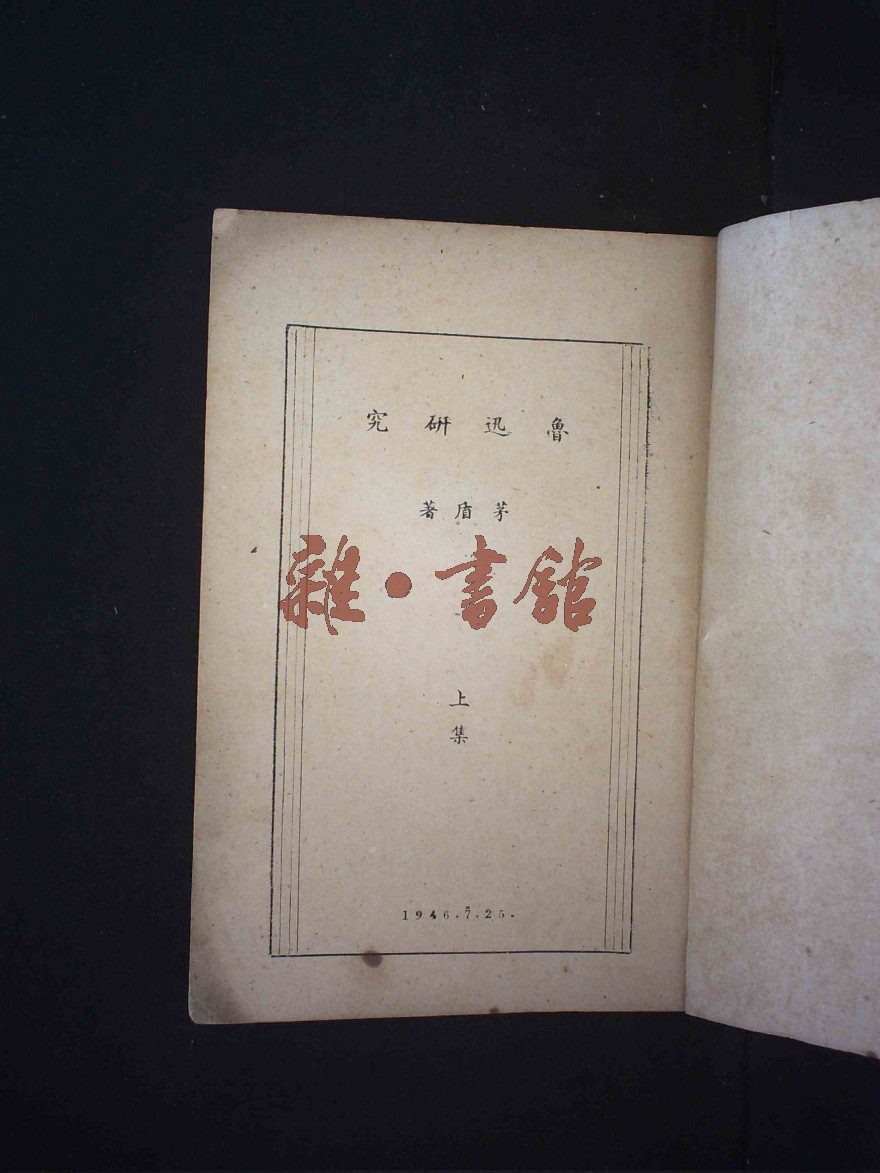 魯迅研究
茅盾著
雜·書館
上
集
1946.7.25.